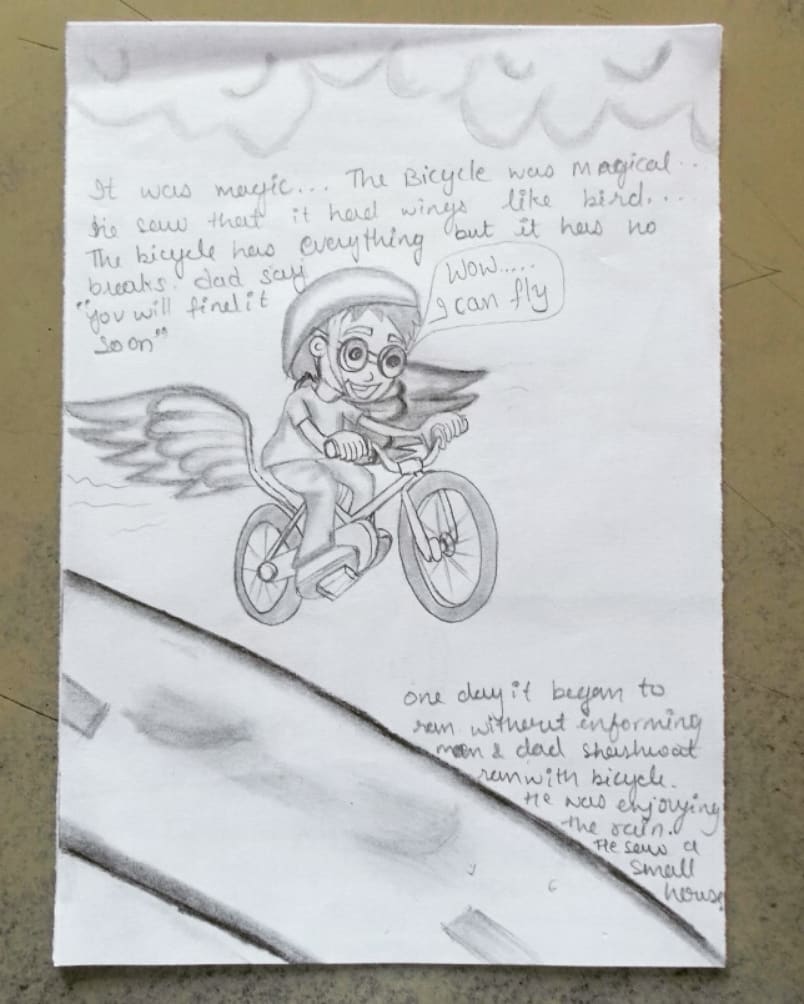 It was magic... The Bicycle was Magical..
He saw that it had wings like bird...
The bicycle has everything but it has no
breaks. dad say
"you will find it
soon"
WOW.....
I can fly
one day it began to
ran without enforming
mom & dad Shashwat
ran with bicycle.
He was enjoying
the rain.
He saw a
small
house